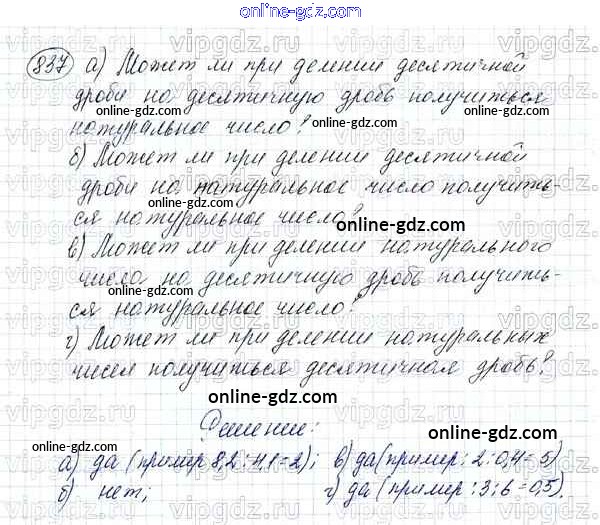 online-gdz.com
837 а) Может ли при делении десятичной
дроби на десятичную дробь получиться
натуральное число?
online-gdz.com
б) Может ли при делении десятичной
дроби на натуральное число получить-
ся натуральное число?
online-gdz.com
в) Может ли при делении натурального
числа на десятичную дробь получить-
ся натуральное число?
online-gdz.com
г) Может ли при делении натуральных
чисел получиться десятичная дробь?
online-gdz.com
Решение:
online-gdz.com
а) да (пример 8,2:4,1=2); в) да (пример: 2:0,4=5)
б) нет; г) да (пример: 3:6=0,5).
online-gdz.com
vipgdz.ru